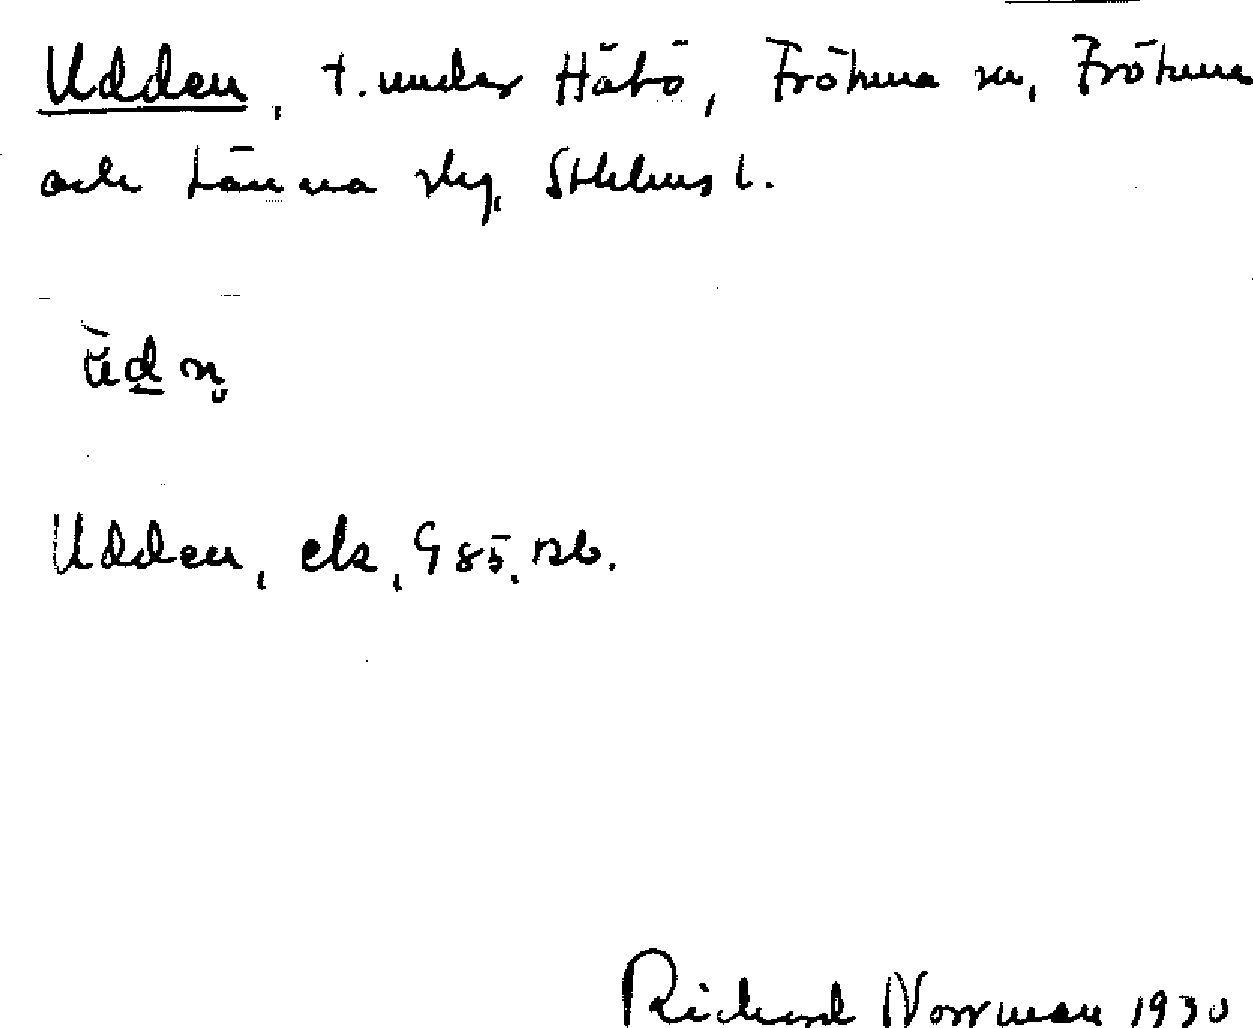 Udden, t. under Håbö, Frötuna sn, Frötuna
och Länna skg, Sthlms l.
ùdn̥
Udden, ek, G 85, Rb.
Richard Norrman 1930